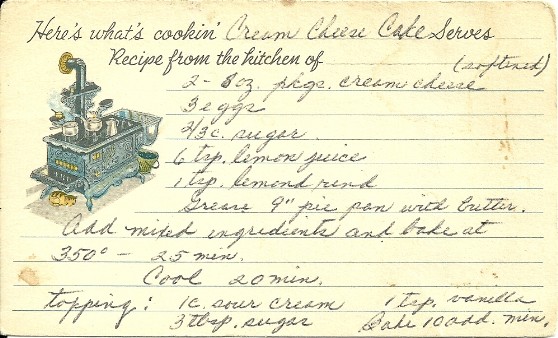 Here's what's cookin' Cream Cheese Cake Serves
Recipe from the kitchen of
(softened)
2 - 8oz. pkgs. cream cheese
3 eggs
2/3 c. sugar
6 tsp. lemon juice
1 tsp. lemond rind
Grease 9" pie pan with butter.
Add mixed ingredients and bake at
350° - 25 min.
Cool 20 min.
topping: 1 c. sour cream 1 tsp. vanilla
3 tbsp. sugar Bake 10 add. min.